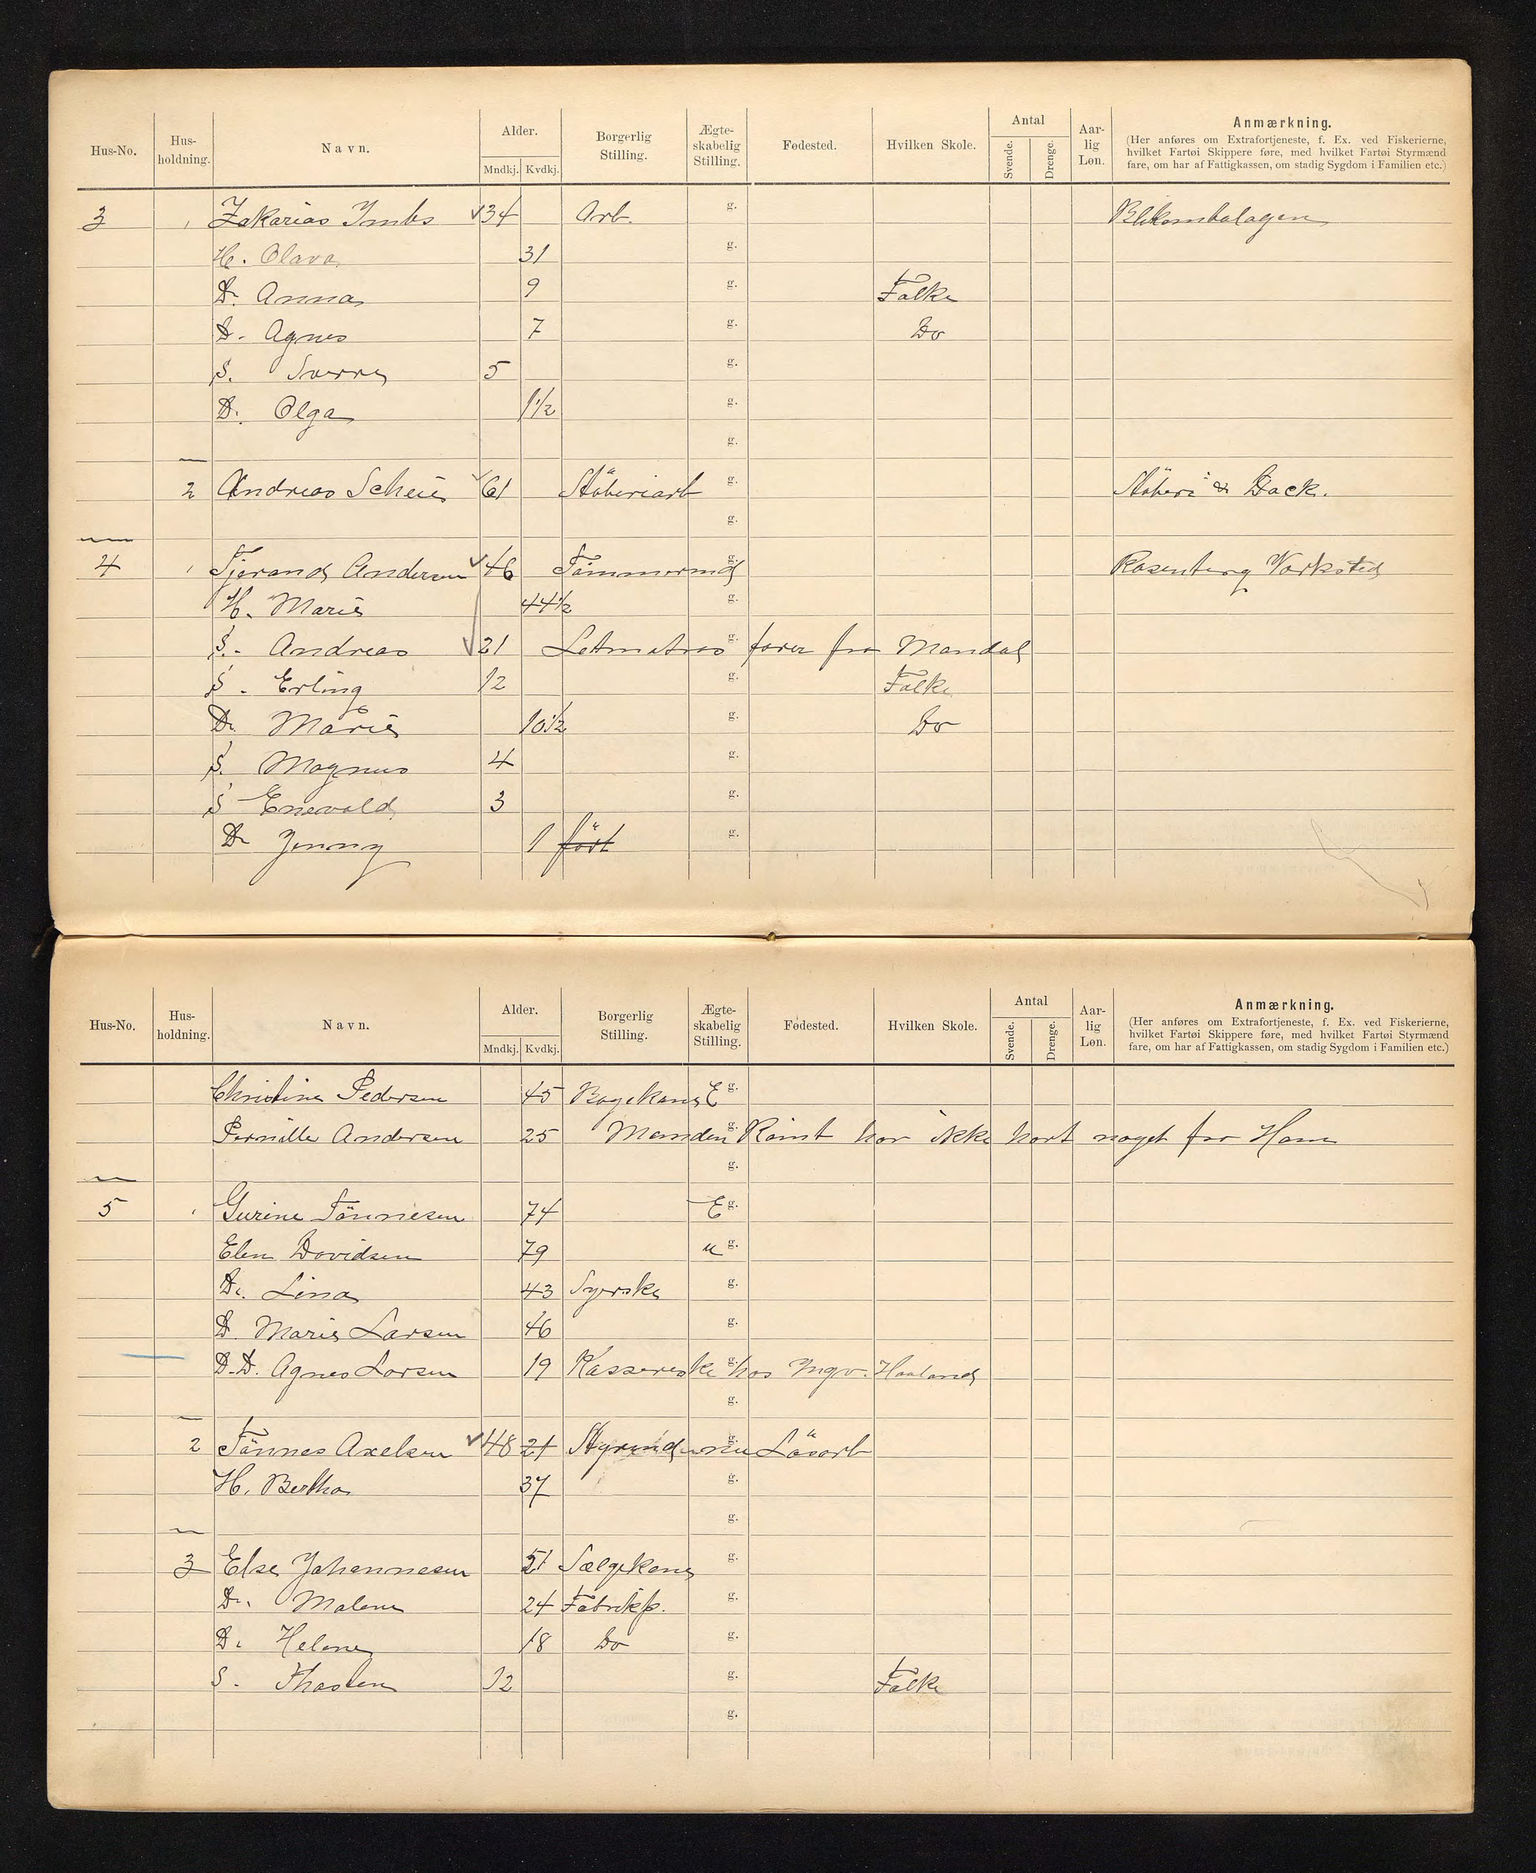 Hus-No. Hus-holdning. Navn. Alder. Mndkj. Kvdkj. Borgerlig Stilling. Ægte-skabelig Stilling. Fødested. Hvilken Skole. Antal Svende. Drenge. Aar-lig Løn. Anmærkning.
(Her anføres om Extrafortjeneste, f. Ex. ved Fiskerierne, hvilket Fartøi Skippere føre, med hvilket Fartøi Styrmænd fare, om har af Fattigkassen, om stadig Sygdom i Familien etc.)
3 1 Zakarias Imbs 34 Arb. g. Blikembalagen
H. Olava 31 g.
D. Anna 9 g. Folke
D. Agnes 7 g. Do
S. Sverre 5 g.
D. Olga 1½ g.
g.
2 Andreas Scheie 61 Stöberiarb g. Stöberi & Dock.
g.
4 1 Tjerand Andersen 46 Tömmermd g. Rosenberg Værksted
H. Marie 44½ g.
S. Andreas 21 Letmatros g. farer fra Mandal
S. Erling 12 g. Folke
D. Marie 10½ g. Do
S. Magnus 4 g.
S Enevald 3 g.
D Jenny 1 fört g.
Hus-No. Hus-holdning. Navn. Alder. Mndkj. Kvdkj. Borgerlig Stilling. Ægte-skabelig Stilling. Fødested. Hvilken Skole. Antal Svende. Drenge. Aar-lig Løn. Anmærkning.
(Her anføres om Extrafortjeneste, f. Ex. ved Fiskerierne, hvilket Fartøi Skippere føre, med hvilket Fartøi Styrmænd fare, om har af Fattigkassen, om stadig Sygdom i Familien etc.)
Christine Pedersen 45 Bagekone E g.
Pernille Andersen 25 Manden g. Römt har ikke hört noget fra Ham
g.
5 1 Gurine Tönnesen 74 E g.
Elen Davidsen 79 u g.
D. Lina 43 Syerske g.
D. Marie Larsen 46 g.
D.D. Agnes Larsen 19 Kassereske g. hos Ingv. Haaland
g.
2 Tönnes Axelsen 48 21 Styrmd g. nu Lösarb
H. Bertha 37 g.
g.
3 Else Johannesen 51 Sælgekone g.
D. Malene 24 Fabrikp. g.
D. Helene 18 Do g.
S. Thorlen 12 g. Folke
g.